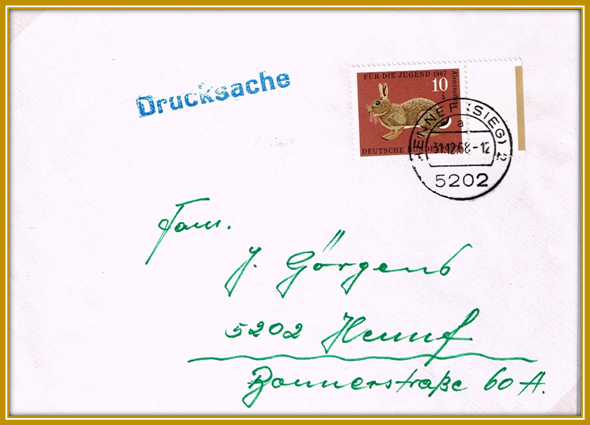 Drucksache
FÜR DIE JUGEND 1967
10
DEUTSCHE BUNDESPOST
HENNEF (SIEG) 2
a
31.12.68-12
5202
Fam.
J. Görgens
5202 Hennef
Bonnerstraße 60 A.